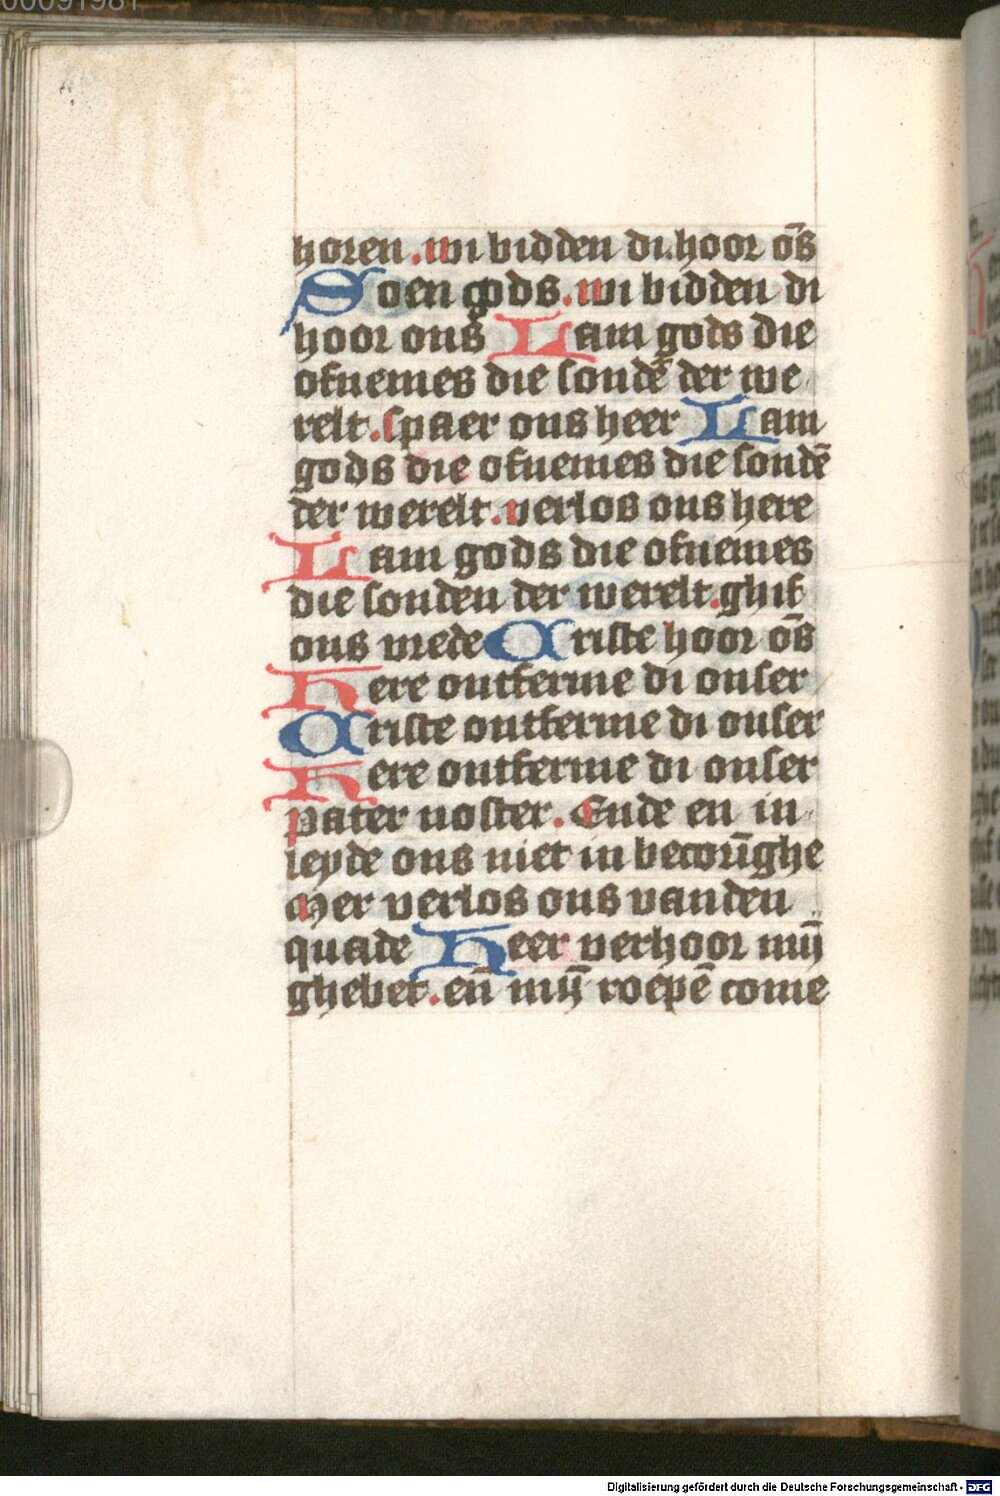 00091981
horen . wi bidden di. hoor ōs
Soen gods . wi bidden di
hoor ons Lam gods die
ofnemes die sondē der we
relt . spaer ons heer Lam
gods die ofnemes die sondē
der werelt . verlos ons here
Lam gods die ofnemes
die sonden der werelt . ghif
ons vrede Criste hoor ōs
Here ontferme di onser
Criste ontferme di onser
Here ontferme di onser
pater noster . Ende en in
leyde ons niet in becorīghe
Mer verlos ons vanden
quade Heer verhoor mij̄
ghebet . eñ mij̄ roepē come
Digitalisierung gefördert durch die Deutsche Forschungsgemeinschaft - DFG